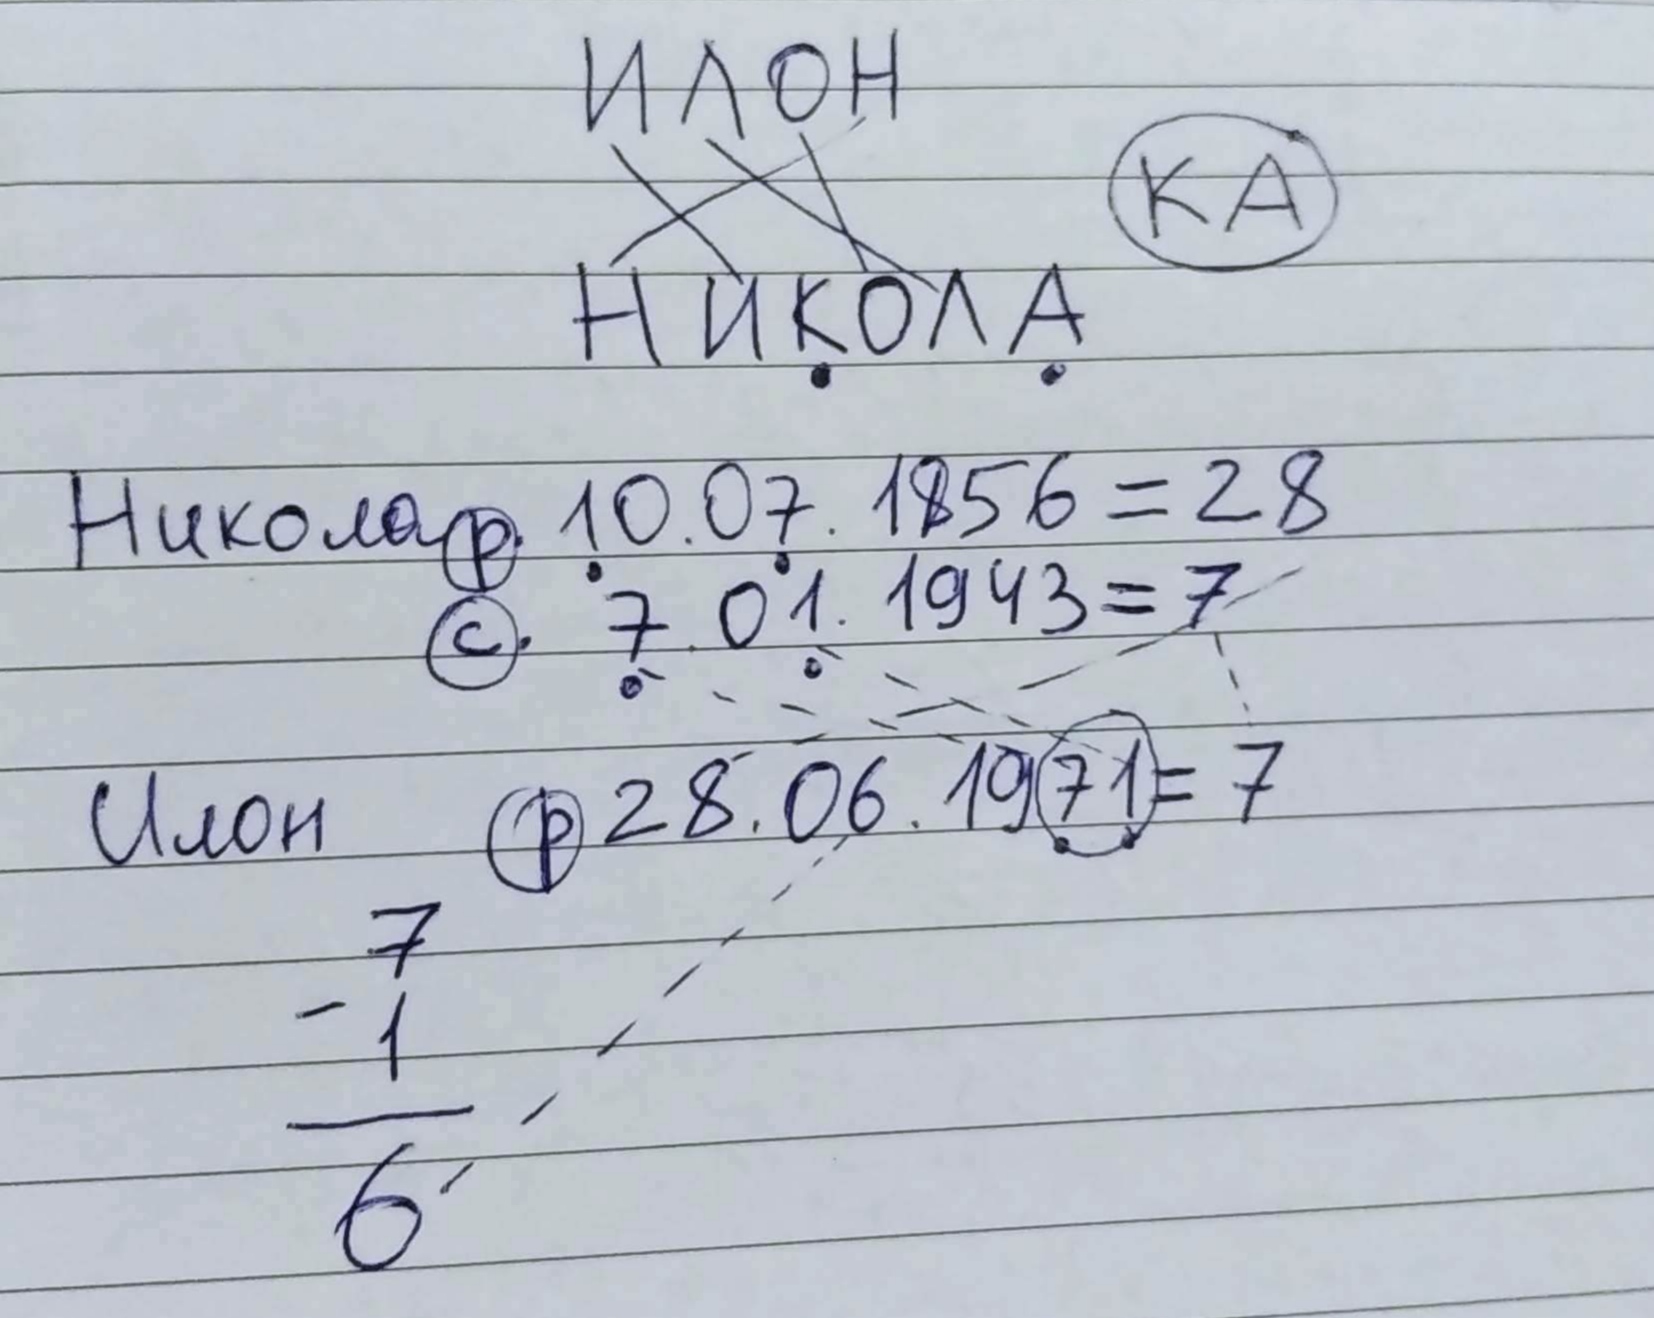 ИЛОН
КА
НИКОЛА
Никола р. 10.07.1856=28
с. 7.01.1943=7
Илон р 28.06.1971=7
7
- 1
6